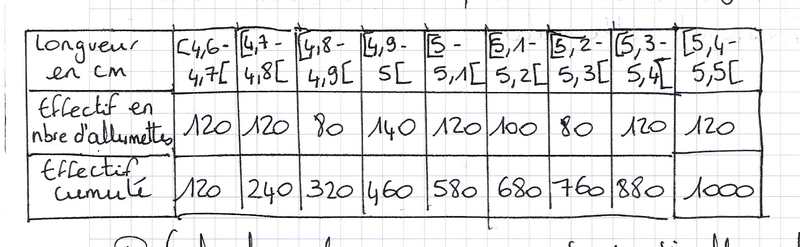 Longueur en cm [4,6-4,7[ [4,7-4,8[ [4,8-4,9[ [4,9-5[ [5-5,1[ [5,1-5,2[ [5,2-5,3[ [5,3-5,4[ [5,4-5,5[
Effectif en nbre d'allumettes 120 120 80 140 120 100 80 120 120
Effectif cumulé 120 240 320 460 580 680 760 880 1000